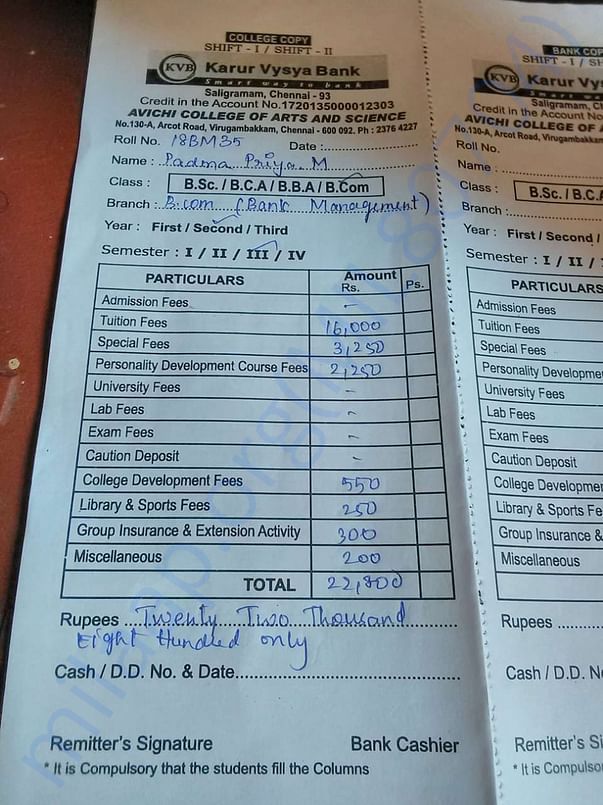 COLLEGE COPY
SHIFT - I / SHIFT - II
KVB Karur Vysya Bank
Smart way to bank
Saligramam, Chennai - 93
Credit in the Account No.1720135000012303
AVICHI COLLEGE OF ARTS AND SCIENCE
No.130-A, Arcot Road, Virugambakkam, Chennai - 600 092. Ph : 2376 4227
Roll No. 18BM35 Date :
Name : Padma Priya. M
Class : B.Sc. / B.C.A / B.B.A / B.Com
Branch : B.com (Bank Management)
Year : First / Second / Third
Semester : I / II / III / IV
PARTICULARS Amount Rs. Ps.
Admission Fees -
Tuition Fees 16,000
Special Fees 3,250
Personality Development Course Fees 2,250
University Fees -
Lab Fees -
Exam Fees -
Caution Deposit -
College Development Fees 550
Library & Sports Fees 250
Group Insurance & Extension Activity 300
Miscellaneous 200
TOTAL 22,800
Rupees Twenty Two Thousand
Eight Hundred only
Cash / D.D. No. & Date
Remitter's Signature Bank Cashier
* It is Compulsory that the students fill the Columns
BANK COP
SHIFT - I / SH
KVB Karur Vy
Smart wa
Saligramam, Ch
Credit in the Account No
AVICHI COLLEGE OF A
No.130-A, Arcot Road, Virugambakkam
Roll No.
Name :
Class : B.Sc. / B.C.A
Branch :
Year : First / Second /
Semester : I / II /
PARTICULARS
Admission Fees
Tuition Fees
Special Fees
Personality Developme
University Fees
Lab Fees
Exam Fees
Caution Deposit
College Developme
Library & Sports Fe
Group Insurance &
Miscellaneous
Rupees
Cash / D.D. N
Remitter's Si
* It is Compulso